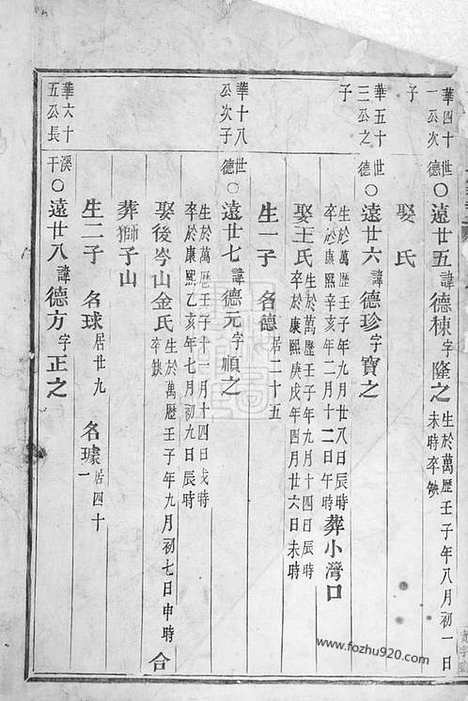 華四十一公次子
世德○遠廿五諱德棟字隆之生於萬歷壬子年八月初一日未時卒缺
娶氏
華五十三公之子
世德○遠廿六諱德珍字寶之生於萬歷壬子年九月廿八日辰時卒於康熙壬子年二月十二日午時葬小灣口
娶王氏生於萬歷壬子年九月十四日辰時卒於康熙庚戌年四月廿六日未時
生一子 名德居二十五
華十八公次子
世德○遠廿七諱德元字順之生於萬歷壬子十一月十四日戌時卒於康熙乙亥年七月初九日辰時
娶後岑山金氏生於萬歷壬子年九月初七日申時卒缺 合
葬獅子山
生二子 名球居廿九 名璩居四十一
華六十五公長
溪干○遠廿八諱德方字正之
www.fozhu920.com